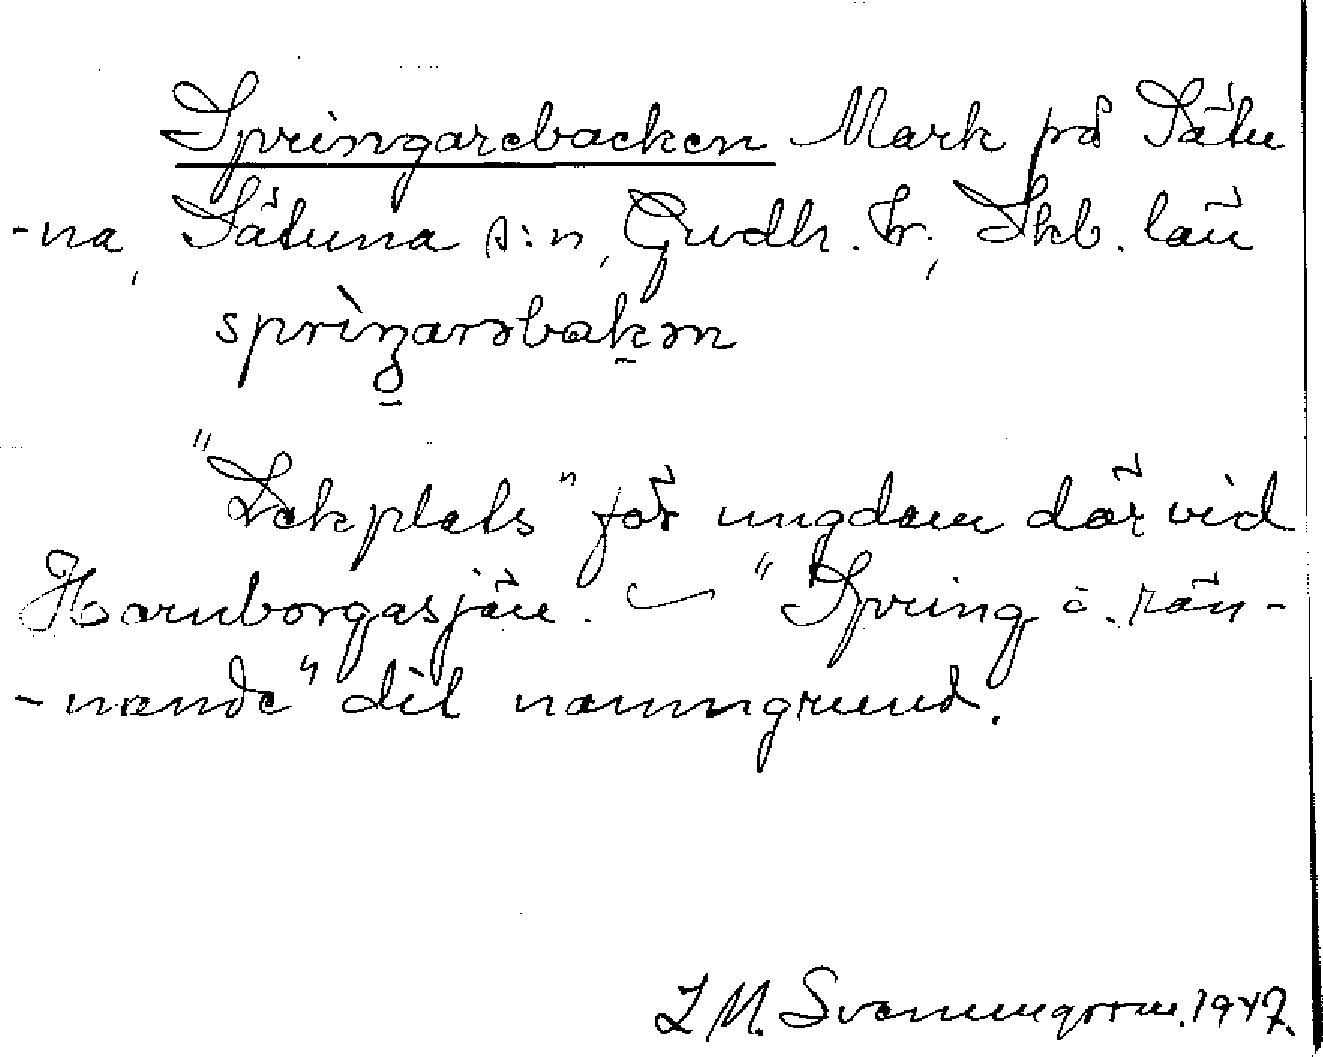 Springarebacken Mark på Sätu
-na, Sätuna s:n, Gudh. hr, Skb. län
"Lekplats" för ungdom där vid
Hornborgasjön. — "Spring å rän-
-nande" till namngrund.
L M. Svenungsson. 1947.